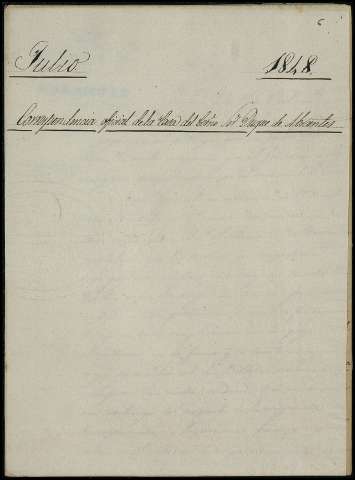 6
Julio 1848
Correspondencia oficial de la Casa del Exmo Sor Duque de Abrantes